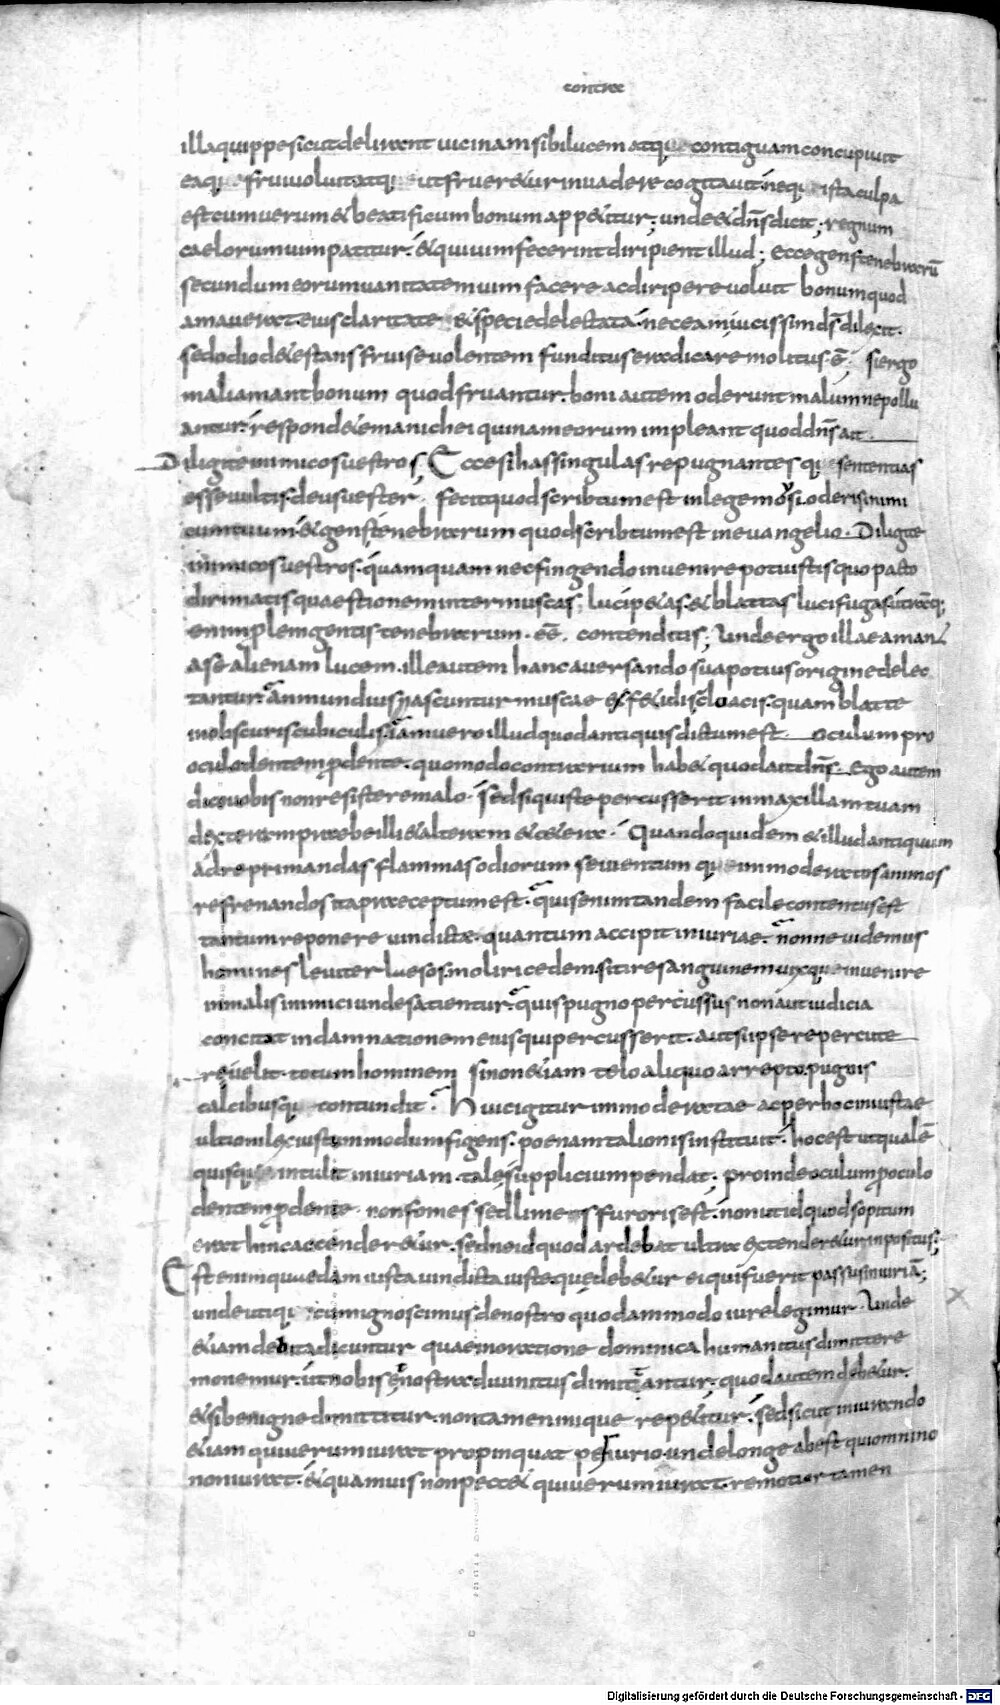 contra
illa quippe sicut delirant uicinam sibi lucem atque contiguam concupiuit
ea que frui uoluit atque ut frueretur inuadere cogitauit. neque ista culpa
est cum uerum et beatificum bonum appetitur; unde et dn̄s dicit; regnum
caelorum uim patitur. et qui uim fecerint diripient illud; ecce gens tenebrarū
secundum eorum uanitatem uim facere ac diripere uoluit bonum quod
amauerat. eius claritate et specie delectata. nec eam uicissim ds̄ dilexit.
sed odio detestans frui se uolentem funditus eradicare molitus .ē. si ergo
mali amant bonum quod fruantur. boni autem oderunt malum ne pollu
antur. respondete manichei quinam eorum impleant quod dn̄s ait
Diligite inimicos uestros; Ecce si has singulas repugnantes que sententias
esse uultis. deus uester fecit quod scribtum est in lege moysi. oderis inimi
cum tuum. et gens tenebrarum quod scribtum est in euangelio. Diligite
inimicos uestros. quamquam nec fingendo inuenire potuistis quo pacto
dirimatis quaestionem inter muscas lucipetas. et blattas lucifugas. utraq;
enim plem gentis tenebrarum .eē. contenditis; Unde ergo illae aman
a se alienam lucem. ille autem hanc auersando sua potius origine delec
tantur. an mundius nascuntur muscae ex fetidis cloacis. quam blatte
in obscuris cubiculis. iam uero illud quod antiquis dictum est. oculum pro
oculo. dentem p dente. quomodo contrarium habet quod ait dn̄s. Ego autem
dico uobis non resistere malo. sed si quis te percusserit in maxillam tuam
dexteram praebe illi et alteram et cetera. Quandoquidem et illud antiquum
ad reprimandas flammas odiorum seuientum que immoderatos animos
refrenandos ita praeceptum est. quis enim tandem facile contentus est
tantum reponere uindictae. quantum accipit iniuriae. nonne uidemus
homines leuiter laesos. moliri cedem sitire sanguinem uix que inuenire
in malis inimici unde satientur. quis pugno percussus non aut iudicia
concitat in damnationem eius qui percusserit. aut si ipse repercute
re uelit. totum hominem si non etiam telo aliquo arrepto. pugnis
calcibusque contundit. Huic igitur immoderatae ac per hoc iniustae
ultioni lex iustum modum figens. poenam talionis instituit. hoc est ut qualē
quisque intulit iniuriam. tale supplicium pendat; proinde oculum p oculo
dentem p dente non fomes sed limes furoris est. non ut id quod sopitum
erat hinc accenderetur. sed ne id quod ardebat ultra extenderetur inpositus;
Est enim quaedam iusta uindicta iusteque debetur ei qui fuerit passus iniuriā;
unde utique cum ignoscimus de nostro quodammodo iure legimur. Unde
etiam debita dicuntur quae in oratione dominica humanitus dimittere
monemur. ut nobis et nostra diuinitus dimittantur. quod autem debetur.
etsi benigne dimittitur. non tamen inique repetitur. sed sicut in iurando
etiam qui uerum iurat propinquat periurio. unde longe abest qui omnino
non iurat. et quamuis non peccet qui uerum iurat. remotior tamen
Digitalisierung gefördert durch die Deutsche Forschungsgemeinschaft - DFG